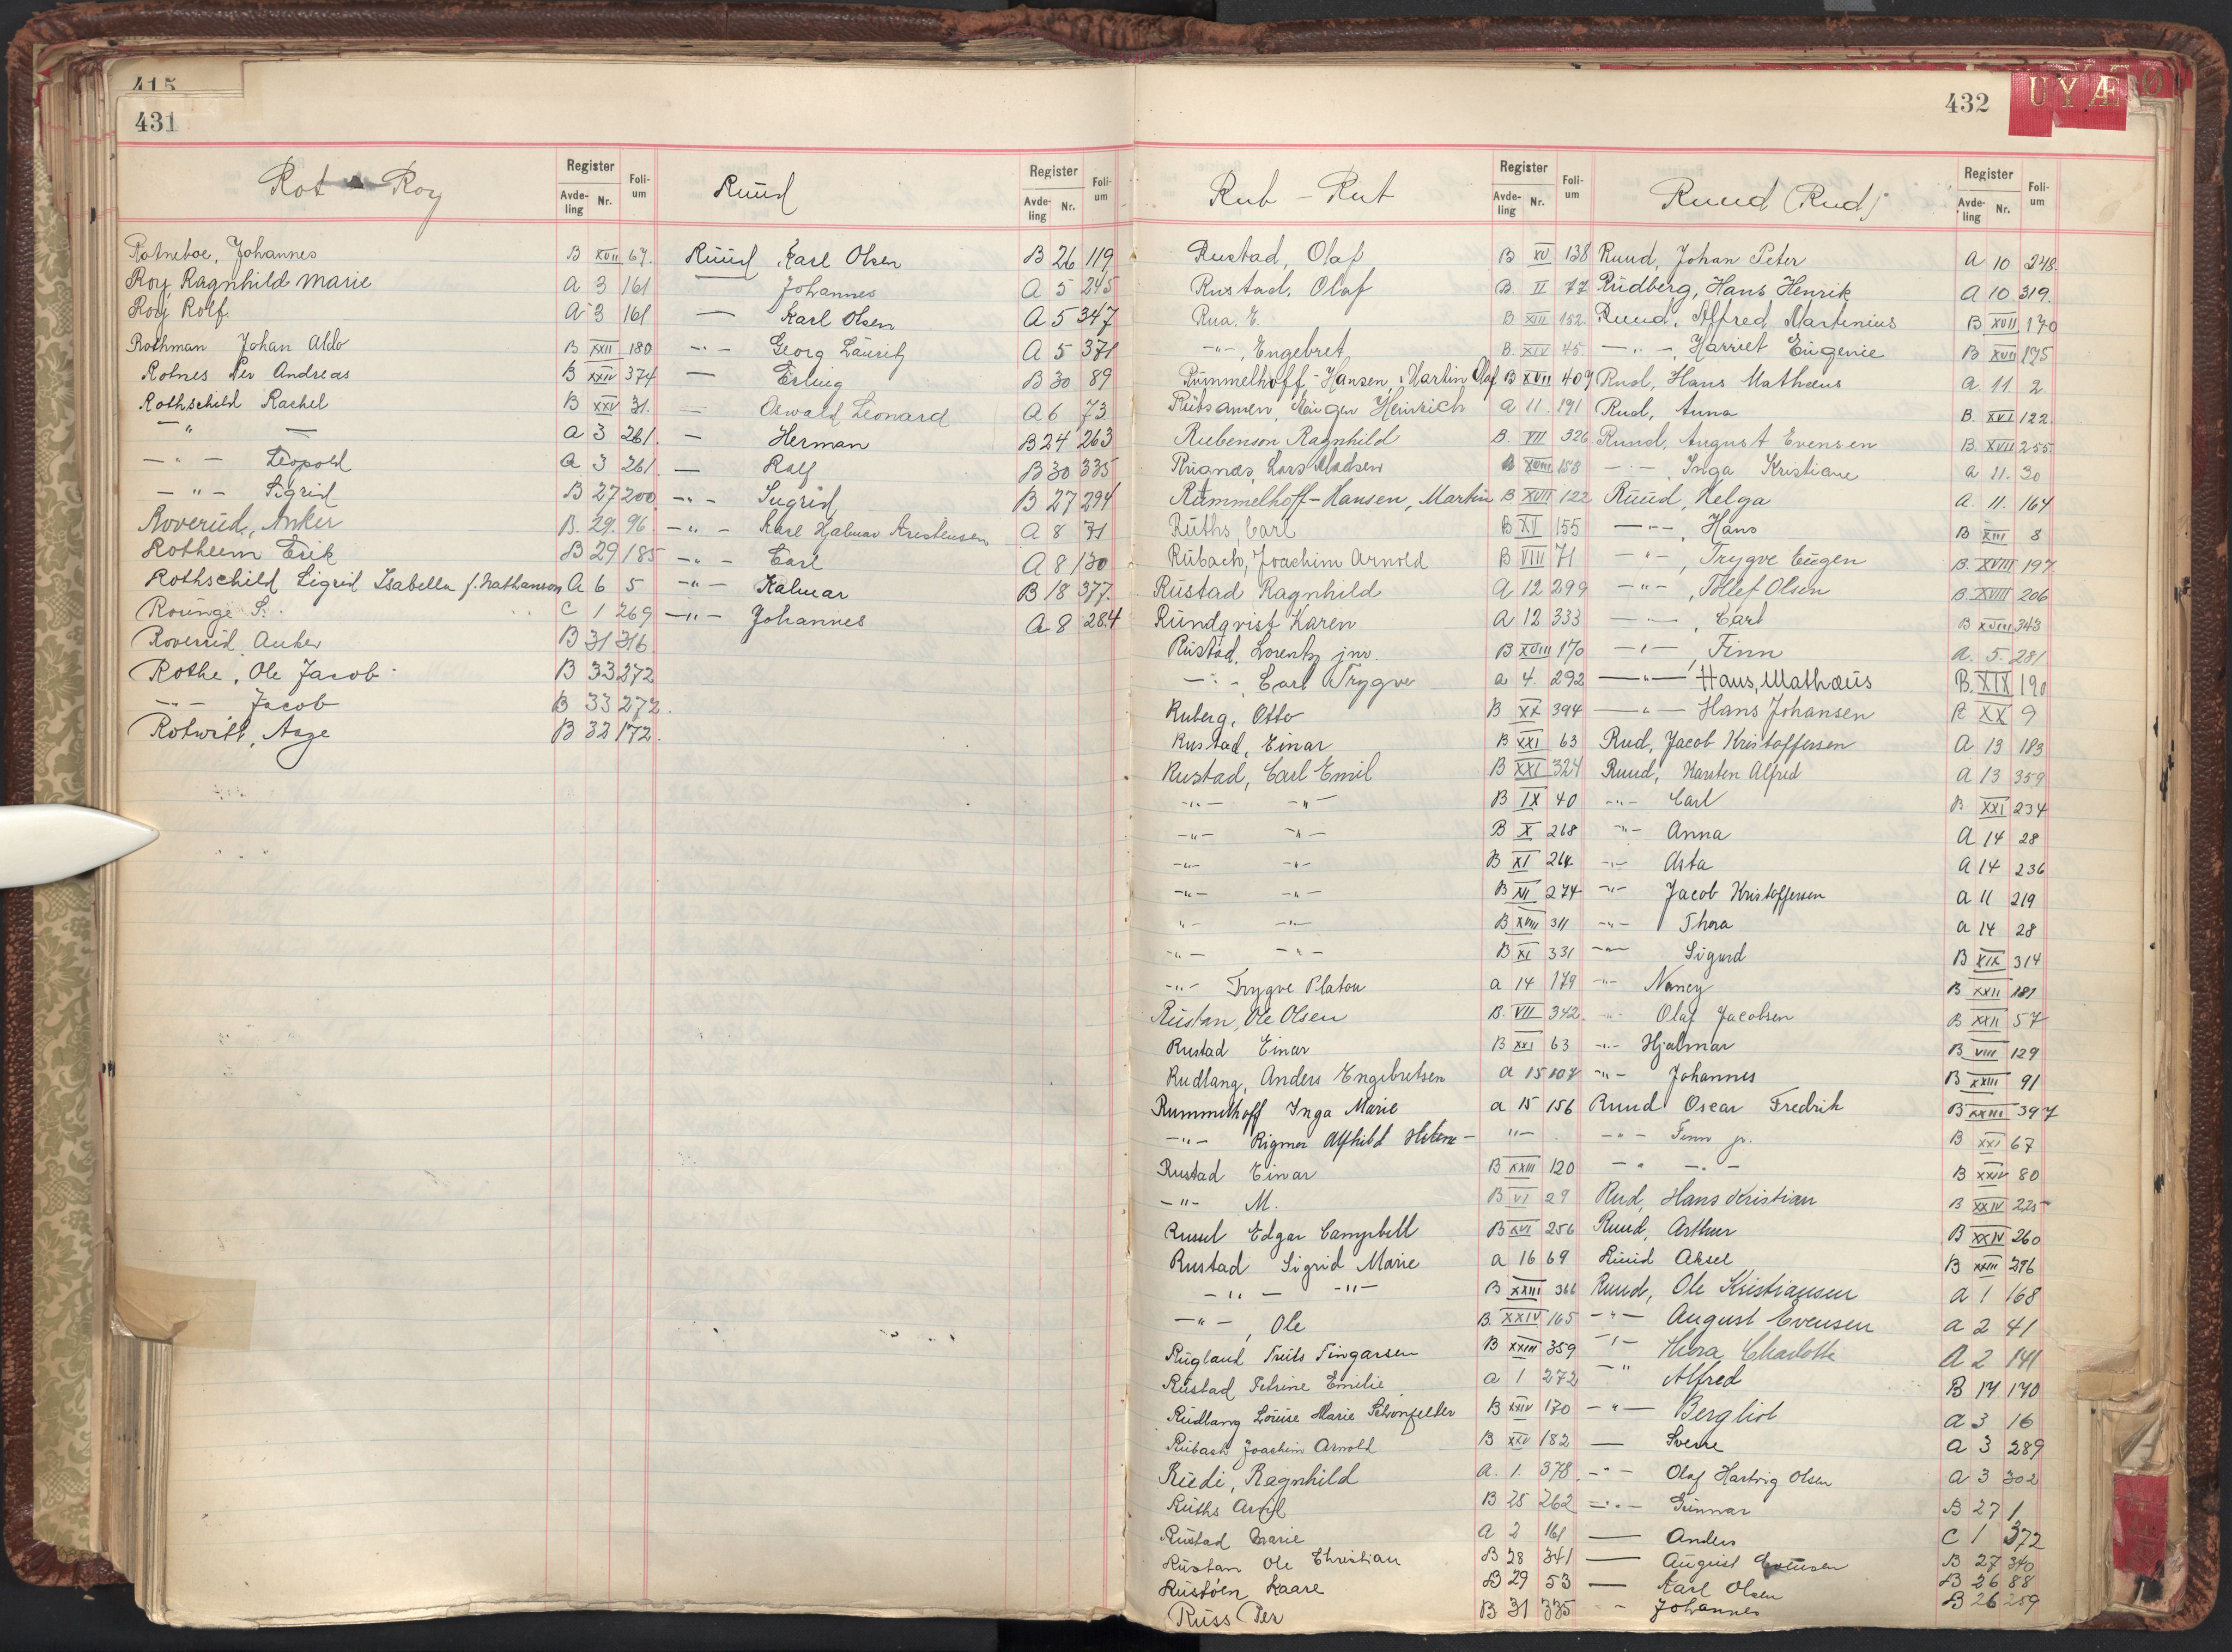 415
431
Rot - Roy
Register
Avde-ling Nr.
Foli-um
Rotneboe, Johannes B XVII 67.
Roy Ragnhild Marie A 3 161
Roy Rolf. A 3 161
Rothman Johan Aldo B XXII 180
Rotnes Per Andreas B XXIV 374
Rothschild Rachel B XXV 31.
— " — A 3 261.
— " — Leopold A 3 261.
— " — Sigrid B 27 200
Roverud, Anker B. 29. 96
Rotheim Erik B 29 185
Rothschild Sigrid Isabella f. Nathanson A 6 5
Rounge S. C 1 269
Roverud, Anker B 31 316
Rothe, Ole Jacob B 33 272
— " — Jacob B 33 272.
Rotwitt, Aage B 32 172.
Ruud
Register
Avde-ling Nr.
Foli-um
Ruud Karl Olsen B 26 119
— Johannes A 5 245
— Karl Olsen A 5 347
— " — Georg Lauritz A 5 371
— Erling B 30 89
— Oswald Leonard A 6 73
— Herman B 24 263
— Ralf B 30 335
— " — Sugrid B 27 294
— " — Karl Hjalmar Kristensen A 8 71
— " — Earl A 8 130
— " — Kalmar B 18 377.
— " — Johannes A 8 284
432
U Y Æ Ø
Rub - Rut
Register
Avde-ling Nr.
Foli-um
Rustad, Olaf B XV 138
Rustad, Olaf B. II 77
Rua. E. B XIII 152
— " —, Engebret B. XIV 45.
Rummelhoff-Hansen, Martin Olaf B XVII 409
Rübsamen, Eugen Heinrich A 11. 191
Rubenson Ragnhild B. VII 326
Rugnæs, Lars Madsen B XVIII 158
Rummelhoff-Hansen, Martin B XVIII 122
Ruths, Carl B XI 155
Rubach, Joachim Arnold B VIII 71
Rustad Ragnhild A 12 299
Rundqvist Karen A 12 333
Rustad, Lorentz jnr. B XVIII 170
— " —, Carl Trygve a 4. 292
Ruberg, Otto B XX 394
Rustad, Einar B XXI 63
Rustad, Carl Emil B XXI 324
— " — — " — B IX 40
— " — — " — B X 268
— " — — " — B XI 264
— " — — " — B XI 274
— " — — " — B XVIII 311
— " — — " — B XI 331
— " — Trygve Platou a 14 179
Rustan, Ole Olsen B. VII 342.
Rustad Einar B XXI 63
Rudlang, Anders Engebretsen a 15 107
Rummelhoff Inga Marie a 15 156
— " — Rigmor Alfhild Helene — " —
Rustad Einar B XXIII 120
— " — M. B VI 29
Russel Edgar Campbell B XVI 256
Rustad Sigrid Marie a 16 69
— " — — " — B XXIII 366
— " —, Ole B. XXIV 165
Rugland Truls Fingarsen B XXIII 359
Rustad Petrine Emilie a 1 272
Rudlang Louise Marie Schonfelder B XXIV 170
Rubach Joachim Arnold B XXV 182
Ruedi, Ragnhild A. 1. 378.
Ruths B 25 262
Rustad Marie A 2 161
Rustan Ole Christian B 28 341
Rustöen Kaare B 29 53
Russ Per B 31 335
Ruud (Rud)
Register
Avde-ling Nr.
Foli-um
Ruud, Johan Peter A 10 248.
Rudberg, Hans Henrik A 10 319.
Ruud, Alfred Martinius B XVII 170
— " —, Harriet Eugenie B XVII 175
Rud, Hans Mathæus a. 11. 2.
Rud, Anna B. XVI 122
Ruud, August Evensen B. XVII 255.
— " —, Inga Kristiane a 11. 30
Ruud, Helga A. 11. 164
— " —, Hans B XIII 8
— " —, Trygve Eugen B. XVIII 197
— " —, Tollef Olsen B. XVIII 206
— " —, Carl B XVIII 343
— " —, Finn A. 5. 281
— " — Hans, Mathæus B. XIX 190
— " — Hans Johansen B XX 9
Rud, Jacob Kristoffersen A 13 183
Ruud, Karsten Alfred A 13 359
— " — Carl B XXI 234
— " — Anna A 14 28
— " — Asta A 14 236
— " — Jacob Kristoffersen a 11 219
— " — Thora a 14 28
— " — Sigurd B XIX 314
— " — Nancy B XXII 181
— " — Olaf Jacobsen B XXII 57
— " — Hjalmar B VIII 129
— " — Johannes B XXIII 91
Ruud Oscar Fredrik B XXIII 397
— " — Finn jr. B XXI 67
— " — — " — B XXIV 80
Rud, Hans Kristian B XXIV 225
Ruud, Arthur B XXIV 260
Ruud Aksel B XXIII 296
Ruud, Ole Kristiansen a 1 168
— " — August Evensen a 2 41
— " — Charlotte A 2 141
— " Alfred B 17 170
— " — Bergliot a 3 16
— Sverre a 3 289
— " — Olaf Hartvig Olsen a 3 302
— " — Gunnar B 27 1
— Anders C 1 372
— August Evensen B 27 340
— Karl Olsen B 26 88
— " Johannes B 26 259